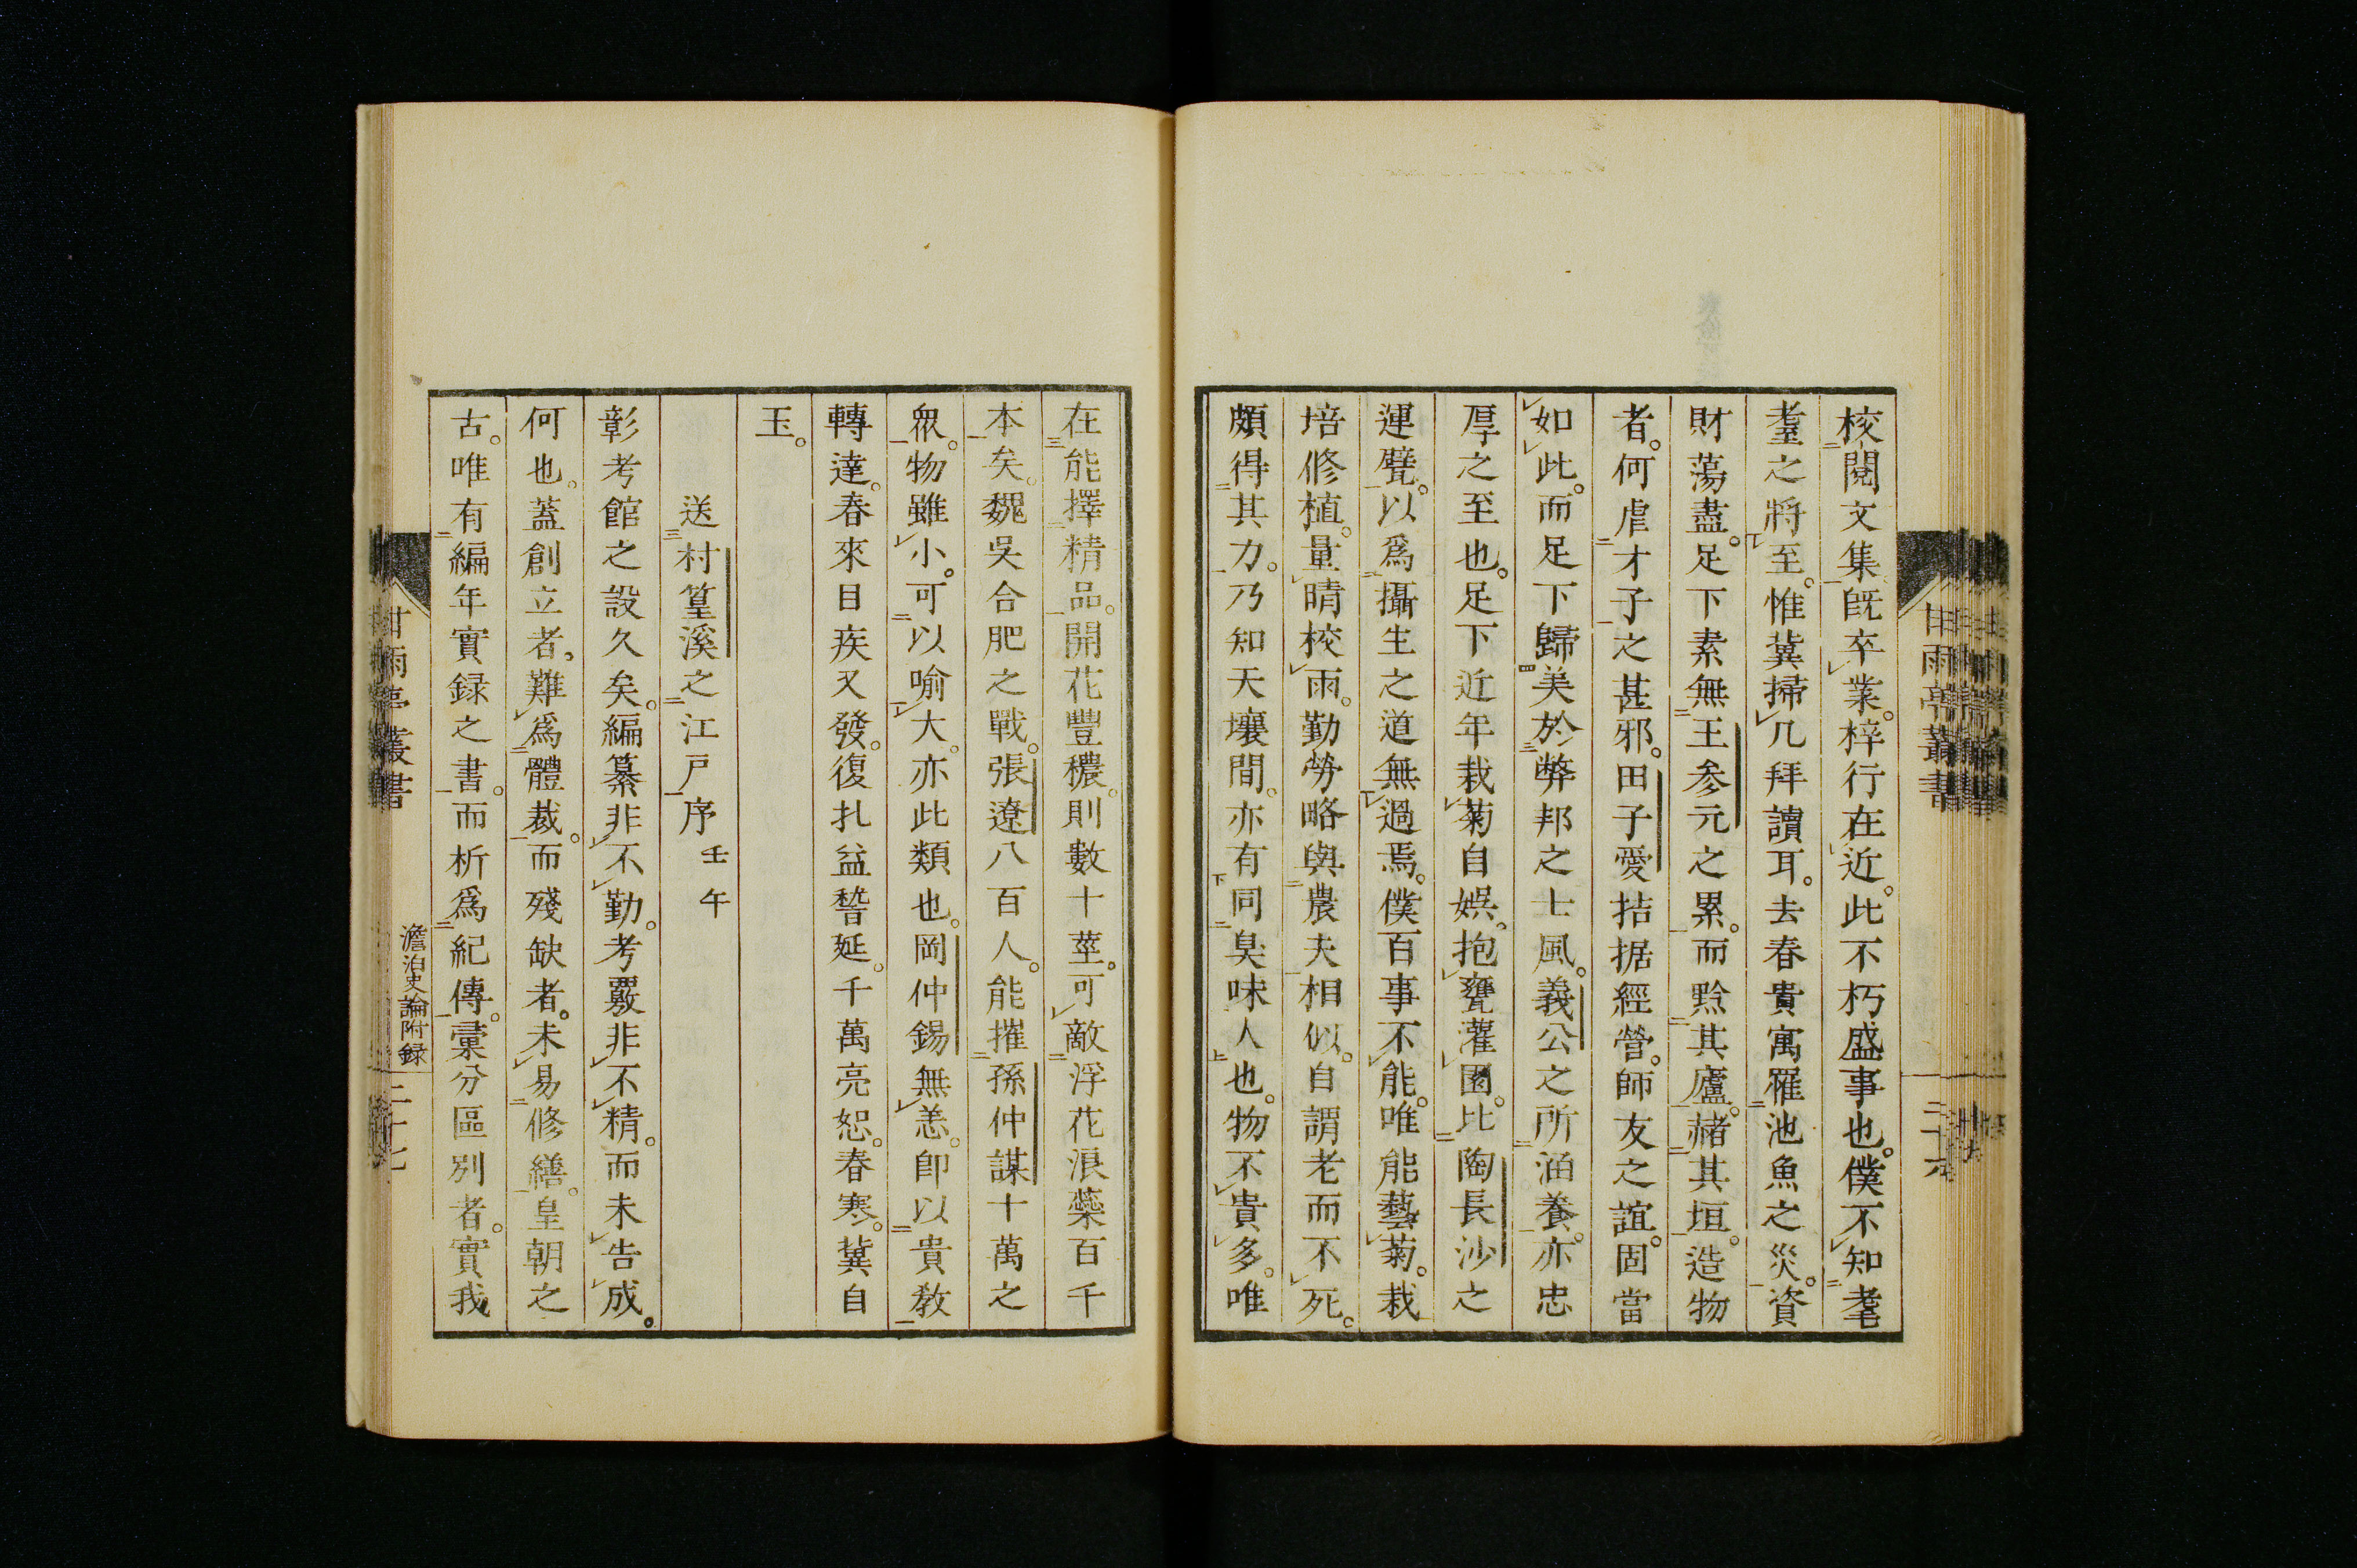 校閲文集。既卒業。梓行在近。此不朽盛事也。僕不知耄
耋之將至。惟冀掃几拜讀耳。去春貴寓罹池魚之災。資
財蕩盡。足下素無王參元之累。而黔其廬。赭其垣。造物
者。何虐才子之甚邪。田子愛拮据經營。師友之誼。固當
如此。而足下歸美於弊邦之士風。義公之所涵養。亦忠
厚之至也。足下近年栽菊自娯。抱甕灌園。比陶長沙之
運甓。以爲攝生之道無過焉。僕百事不能。唯能藝菊。栽
培修植。量晴校雨。勤勞略與農夫相似。自謂老而不死。
頗得其力。乃知天壤間。亦有同臭味人也。物不貴多。唯
在能擇精品。開花豐穠。則數十莖。可敵浮花浪蘂百千
本矣。魏吳合肥之戰。張遼八百人。能摧孫仲謀十萬之
衆。物雖小。可以喻大。亦此類也。岡仲錫無恙。卽以貴敎
轉達。春來目疾又發。復札益替延。千萬亮恕。春寒。冀自
玉。
送村篁溪之江戸序 壬午
彰考館之設久矣。編纂非不勤。考覈非不精。而未告成。
何也。蓋創立者。難爲體裁。而殘缺者。未易修繕。皇朝之
古。唯有編年實録之書。而析爲紀傳。彙分區別者。實我
甘雨亭叢書
二十六
甘雨亭叢書
澹泊史論附録
二十七